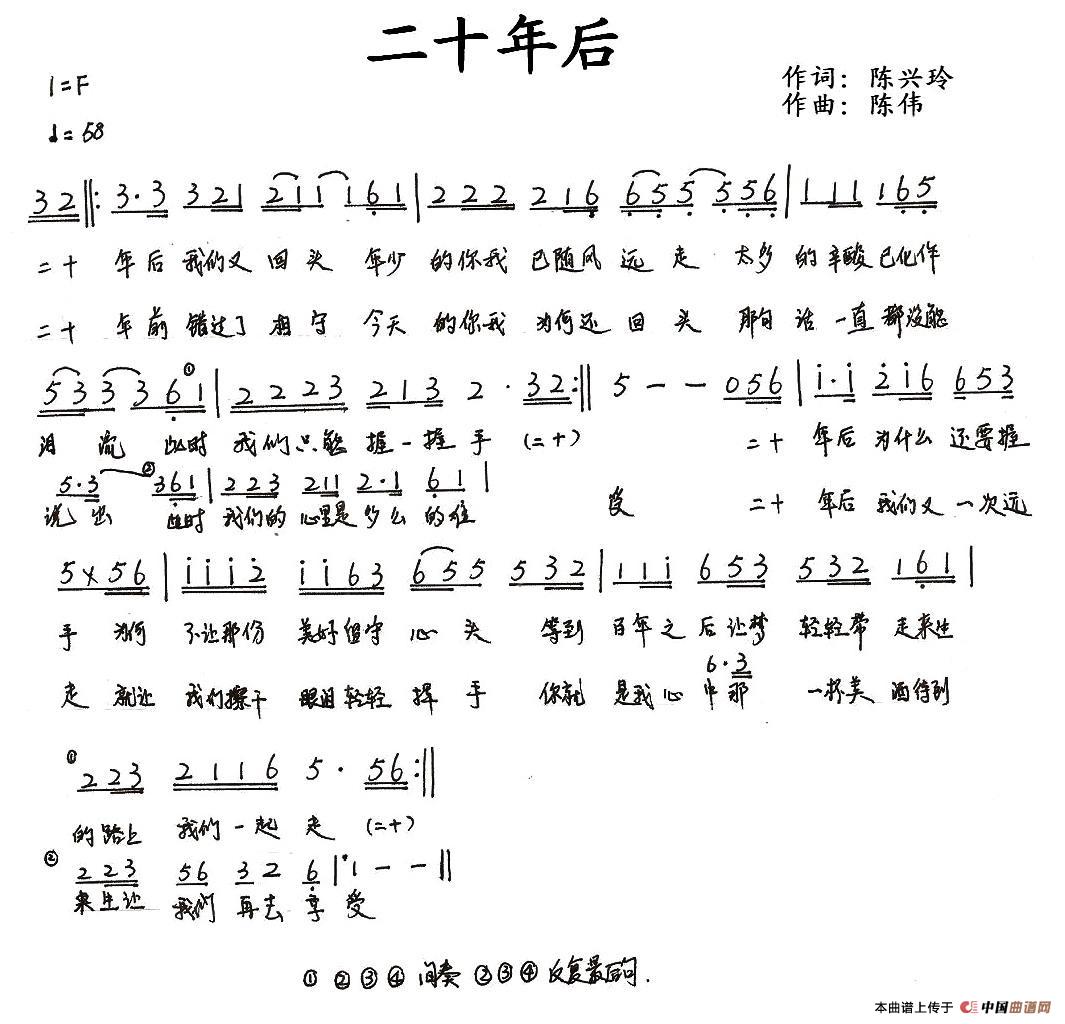 二十年后
1=F
作词：陈兴玲
作曲：陈伟
♩=58
32‖: 3·3 321 211 161 | 2222 216 655 5556 | 111 165
二十 年后我们又回头 年少的你我已随风远走 太多的辛酸已化作
二十 年前错过了相守 今天的你我为何还回头 那句话一直都没能
533 361 | 2223 213 2·32:‖ 5--056 | i·i 2i6 653
泪流 此时我们只能握一握手(二十) 二十 年后为什么还要握
② 5·3 361 | 223 211 2·1 61 |
说出 此时我们的心里是多么的难 受 二十 年后我们又一次远
5×56 | iii2 ii63 655 532 | 11i 653 532 161 |
手 为何不让那份美好留守心头 等到百年之后让梦轻轻带走来生
6·3
走 就让我们擦干眼泪轻轻挥手 你就是我心中那一杯美酒待到
① 223 2116 5·56:‖
的路上 我们一起走(二十)
② 223 56 32 6 | 1--‖
来生让我们再去享受
① ② ③ ④ 间奏 ② ③ ④ 反复最后句.
本曲谱上传于 中国曲谱网